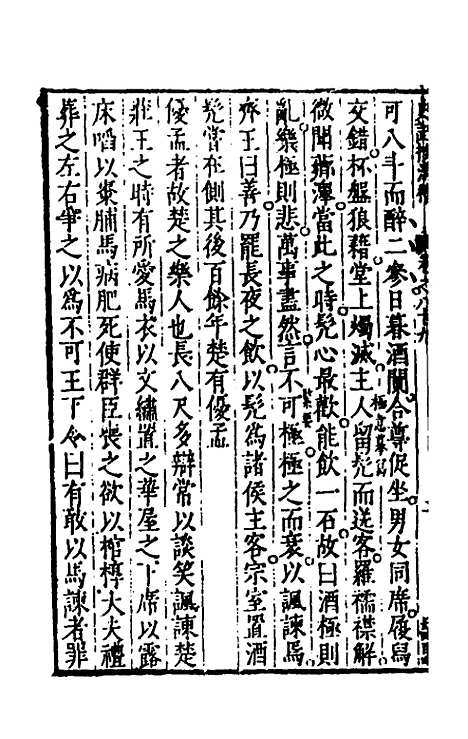 可八斗而醉二參日暮酒闌合尊促坐男女同席履舄
交錯杯盤狼籍堂上燭滅主人留髡而送客羅襦襟解
微聞薌澤當此之時髡心最歡能飲一石故曰酒極則
亂樂極則悲萬事盡然言不可極極之而衰以諷諫焉
齊王曰善乃罷長夜之飲以髡爲諸侯主客宗室置酒
髡嘗在側其後百餘年楚有優孟
優孟者故楚之樂人也長八尺多辯常以談笑諷諫楚
莊王之時有所愛馬衣以文繡置之華屋之下席以露
床啗以棗脯馬病肥死使群臣喪之欲以棺槨大夫禮
葬之左右爭之以爲不可王下令曰有敢以馬諫者罪